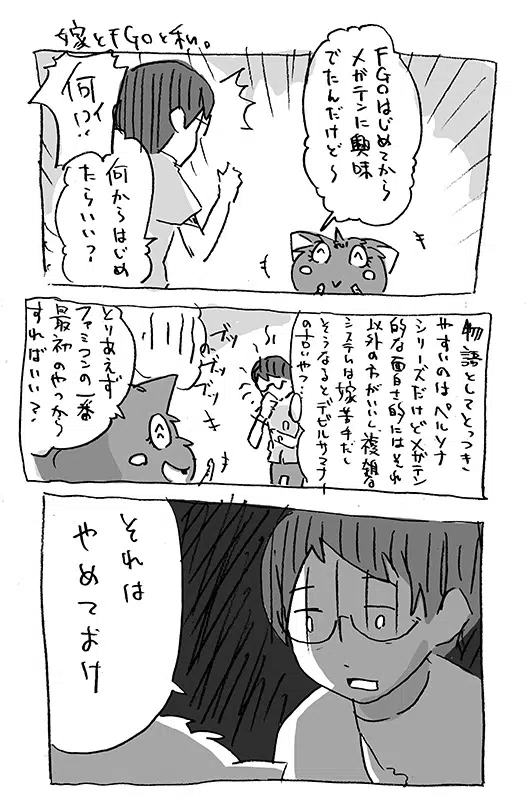 嫁とFGOと私。
FGOはじめてから
メガテンに興味
でたんだけど〜
何ィ!?
何からはじめ
たらいい?
物語としてとっつき
やすいのはペルソナ
シリーズだけどメガテン
的な面白さ的にはそれ
以外の方がいいし、複雑な
システムは嫁苦手だし
そうなるとデビルサマナー
の古いやつ…
ブツ
ブツ
ブツ
とりあえず
ファミコンの一番
最初のやつから
すればいい?
それは
やめておけ